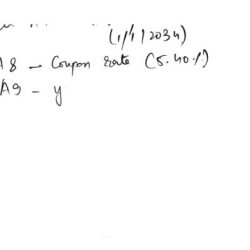 (1/1/2034)
A8 – Coupon rate (5.40%)
A9 – y